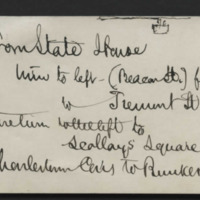 from State House
turn to left - (Beacon St.) f
to Tremont St
return to left to
Scollays Square
Charlestown Cars to Bunker